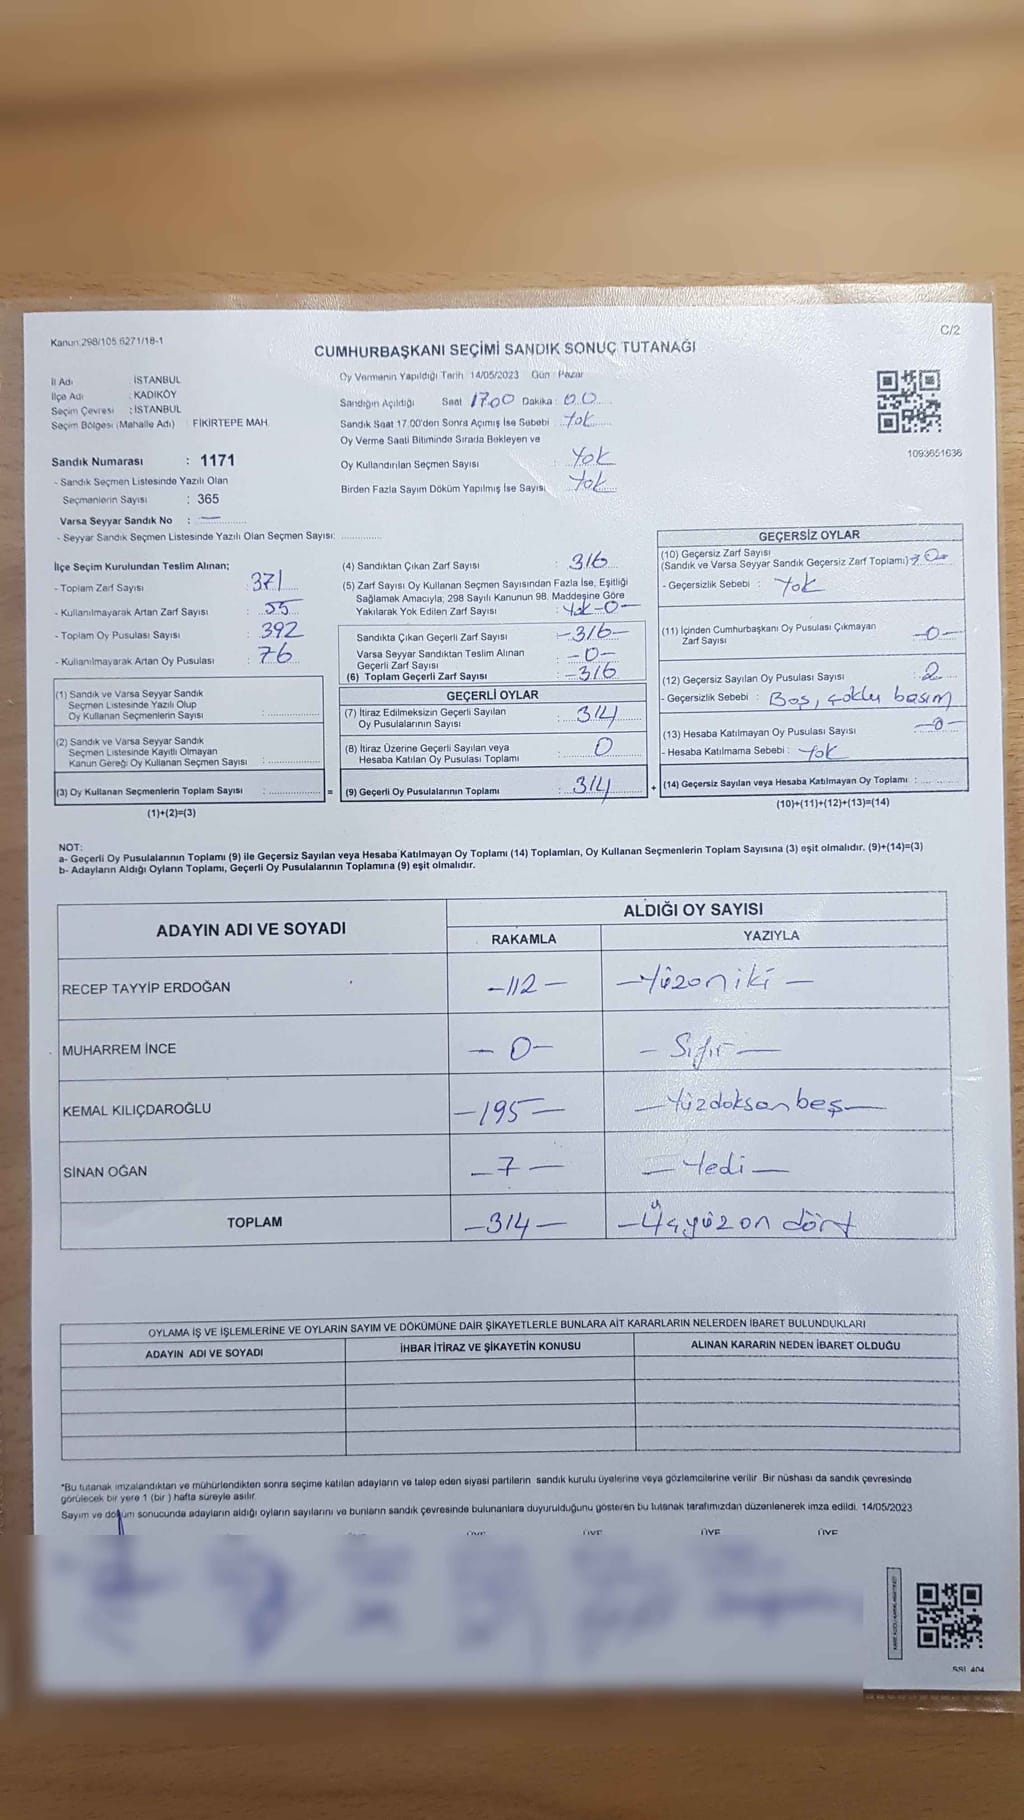 Kanun:298/105 6271/18-1
C/2
CUMHURBAŞKANI SEÇİMİ SANDIK SONUÇ TUTANAĞI
İl Adı : İSTANBUL
İlçe Adı : KADIKÖY
Seçim Çevresi : İSTANBUL
Seçim Bölgesi (Mahalle Adı) : FİKİRTEPE MAH.
Sandık Numarası : 1171
- Sandık Seçmen Listesinde Yazılı Olan
Seçmenlerin Sayısı : 365
Varsa Seyyar Sandık No : —
- Seyyar Sandık Seçmen Listesinde Yazılı Olan Seçmen Sayısı: ..............
Oy Vermenin Yapıldığı Tarih : 14/05/2023 Gün : Pazar
Sandığın Açıldığı Saat 17.00 Dakika : 00
Sandık Saat 17.00'den Sonra Açımış İse Sebebi : Yok
Oy Verme Saati Bitiminde Sırada Bekleyen ve
Oy Kullandırılan Seçmen Sayısı : Yok
Birden Fazla Sayım Döküm Yapılmış İse Sayısı : Yok
1093651636
İlçe Seçim Kurulundan Teslim Alınan;
- Toplam Zarf Sayısı : 371
- Kullanılmayarak Artan Zarf Sayısı : 55
- Toplam Oy Pusulası Sayısı : 392
- Kullanılmayarak Artan Oy Pusulası : 76
(1) Sandık ve Varsa Seyyar Sandık
Seçmen Listesinde Yazılı Olup
Oy Kullanan Seçmenlerin Sayısı : ..............
(2) Sandık ve Varsa Seyyar Sandık
Seçmen Listesinde Kayıtlı Olmayan
Kanun Gereği Oy Kullanan Seçmen Sayısı : ..............
(3) Oy Kullanan Seçmenlerin Toplam Sayısı : .............. =
(1)+(2)=(3)
(4) Sandıktan Çıkan Zarf Sayısı : 316
(5) Zarf Sayısı Oy Kullanan Seçmen Sayısından Fazla İse, Eşitliği
Sağlamak Amacıyla; 298 Sayılı Kanunun 98. Maddesine Göre
Yakılarak Yok Edilen Zarf Sayısı : Yok -0-
Sandıkta Çıkan Geçerli Zarf Sayısı : -316-
Varsa Seyyar Sandıktan Teslim Alınan
Geçerli Zarf Sayısı : -0-
(6) Toplam Geçerli Zarf Sayısı : -316
GEÇERLİ OYLAR
(7) İtiraz Edilmeksizin Geçerli Sayılan
Oy Pusulalarının Sayısı : 314
(8) İtiraz Üzerine Geçerli Sayılan veya
Hesaba Katılan Oy Pusulası Toplamı : 0
(9) Geçerli Oy Pusulalarının Toplamı : 314 +
GEÇERSİZ OYLAR
(10) Geçersiz Zarf Sayısı
(Sandık ve Varsa Seyyar Sandık Geçersiz Zarf Toplamı) -0-
- Geçersizlik Sebebi : Yok
(11) İçinden Cumhurbaşkanı Oy Pusulası Çıkmayan
Zarf Sayısı -0-
(12) Geçersiz Sayılan Oy Pusulası Sayısı : 2
- Geçersizlik Sebebi : Boş, çoklu basım
(13) Hesaba Katılmayan Oy Pusulası Sayısı : -0-
- Hesaba Katılmama Sebebi : Yok
(14) Geçersiz Sayılan veya Hesaba Katılmayan Oy Toplamı : ..............
(10)+(11)+(12)+(13)=(14)
NOT:
a- Geçerli Oy Pusulalarının Toplamı (9) ile Geçersiz Sayılan veya Hesaba Katılmayan Oy Toplamı (14) Toplamları, Oy Kullanan Seçmenlerin Toplam Sayısına (3) eşit olmalıdır. (9)+(14)=(3)
b- Adayların Aldığı Oyların Toplamı, Geçerli Oy Pusulalarının Toplamına (9) eşit olmalıdır.
ADAYIN ADI VE SOYADI ALDIĞI OY SAYISI
RAKAMLA YAZIYLA
RECEP TAYYİP ERDOĞAN -112- -Yüzoniki-
MUHARREM İNCE -0- -Sıfır-
KEMAL KILIÇDAROĞLU -195- -Yüzdoksanbeş-
SİNAN OĞAN -7- -Yedi-
TOPLAM -314- -Üçyüz on dört
OYLAMA İŞ VE İŞLEMLERİNE VE OYLARIN SAYIM VE DÖKÜMÜNE DAİR ŞİKAYETLERLE BUNLARA AİT KARARLARIN NELERDEN İBARET BULUNDUKLARI
ADAYIN ADI VE SOYADI İHBAR İTİRAZ VE ŞİKAYETİN KONUSU ALINAN KARARIN NEDEN İBARET OLDUĞU
*Bu tutanak imzalandıktan ve mühürlendikten sonra seçime katılan adayların ve talep eden siyasi partilerin sandık kurulu üyelerine veya gözlemcilerine verilir. Bir nüshası da sandık çevresinde
görülecek bir yere 1 (bir ) hafta süreyle asılır.
Sayım ve döküm sonucunda adayların aldığı oyların sayılarını ve bunların sandık çevresinde bulunanlara duyurulduğunu gösteren bu tutanak tarafımızdan düzenlenerek imza edildi. 14/05/2023
ÜYE ÜYE ÜYE ÜYE